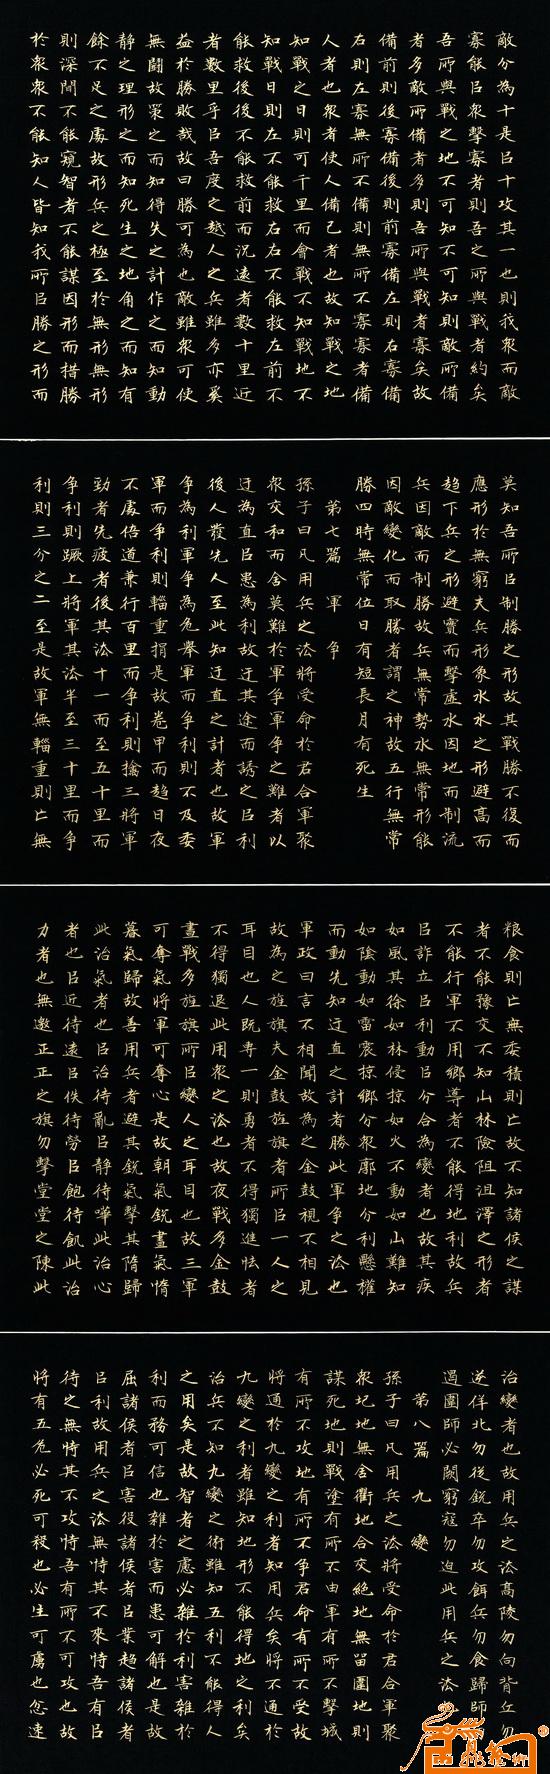 敵分為十是㠯十攻其一也則我衆而敵
寡能㠯衆擊寡者則吾之所與戰者約矣
吾所與戰之地不可知不可知則敵所備
者多敵所備者多則吾所與戰者寡矣故
備前則後寡備後則前寡備左則右寡備
右則左寡無所不備則無所不寡寡者備
人者也衆者使人備己者也故知戰之地
知戰之日則可千里而會戰不知戰地不
知戰日則左不能救右右不能救左前不
能救後後不能救前而況遠者數十里近
者數里乎㠯吾度之越人之兵雖多亦奚
益於勝敗哉故曰勝可為也敵雖衆可使
無鬪故策之而知得失之計作之而知動
靜之理形之而知死生之地角之而知有
餘不足之處故形兵之極至於無形無形
則深間不能窺智者不能謀因形而措勝
於衆衆不能知人皆知我所㠯勝之形而
莫知吾所㠯制勝之形故其戰勝不復而
應形於無窮夫兵形象水水之形避高而
趨下兵之形避實而擊虛水因地而制流
兵因敵而制勝故兵無常勢水無常形能
因敵變化而取勝者謂之神故五行無常
勝四時無常位日有短長月有死生
第七篇 軍爭
孫子曰凡用兵之法將受命於君合軍聚
衆交和而舍莫難於軍爭軍爭之難者以
迂為直㠯患為利故迂其途而誘之㠯利
後人發先人至此知迂直之計者也故軍
爭為利軍爭為危舉軍而爭利則不及委
軍而爭利則輜重捐是故卷甲而趨日夜
不處倍道兼行百里而爭利則擒三將軍
勁者先疲者後其法十一而至五十里而
爭利則蹶上將軍其法半至三十里而爭
利則三分之二至是故軍無輜重則亡無
糧食則亡無委積則亡故不知諸侯之謀
者不能豫交不知山林險阻沮澤之形者
不能行軍不用鄉導者不能得地利故兵
㠯詐立㠯利動㠯分合為變者也故其疾
如風其徐如林侵掠如火不動如山難知
如陰動如雷震掠鄉分衆廓地分利懸權
而動先知迂直之計者勝此軍爭之法也
軍政曰言不相聞故為之金鼓視不相見
故為之旌旗夫金鼓旌旗者所㠯一人之
耳目也人既專一則勇者不得獨進怯者
不得獨退此用衆之法也故夜戰多金鼓
晝戰多旌旗所㠯變人之耳目也故三軍
可奪氣將軍可奪心是故朝氣銳晝氣惰
暮氣歸故善用兵者避其銳氣擊其惰歸
此治氣者也㠯治待亂㠯靜待嘩此治心
者也㠯近待遠㠯佚待勞㠯飽待飢此治
力者也無邀正正之旗勿擊堂堂之陳此
治變者也故用兵之法高陵勿向背丘勿
逆佯北勿從銳卒勿攻餌兵勿食歸師勿
遏圍師必闕窮寇勿迫此用兵之法
第八篇 九變
孫子曰凡用兵之法將受命於君合軍聚
衆圮地無舍衢地合交絕地無留圍地則
謀死地則戰塗有所不由軍有所不擊城
有所不攻地有所不爭君命有所不受故
將通於九變之利者知用兵矣將不通於
九變之利者雖知地形不能得地之利矣
治兵不知九變之術雖知五利不能得人
之用矣是故智者之慮必雜於利害雜於
利而務可信也雜於害而患可解也是故
屈諸侯者㠯害役諸侯者㠯業趨諸侯者
㠯利故用兵之法無恃其不來恃吾有㠯
待之無恃其不攻恃吾有所不可攻也故
將有五危必死可殺也必生可虜也忿速